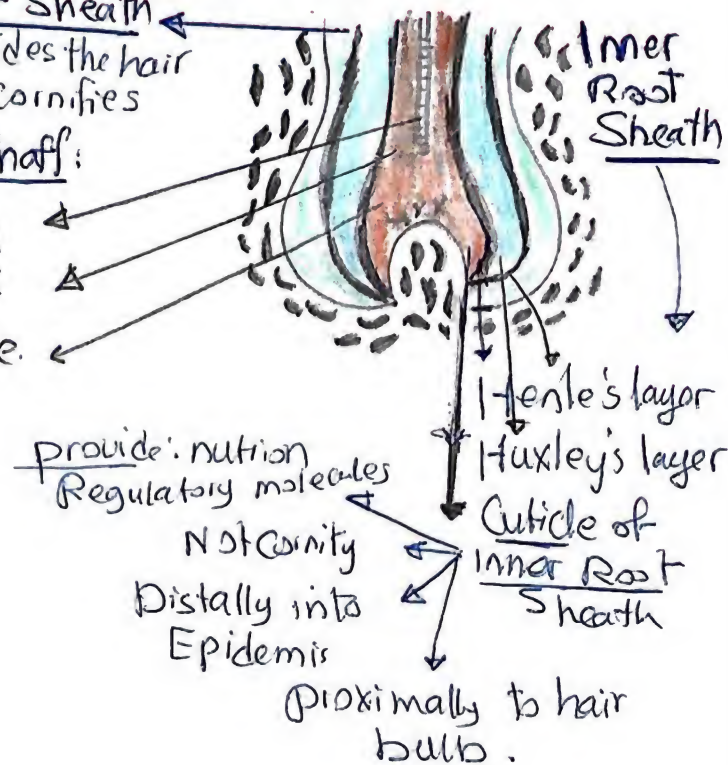 Sheath
des the hair
cornifies
haff:
e.
Inner
Root
Sheath
Henle's layor
Huxley's layer
Cuticle of
Inner Root
Sheath
provide: nutrion
Regulatory molecules
Not Cornity
Distally into
Epidemis
proximally to hair
bulb.